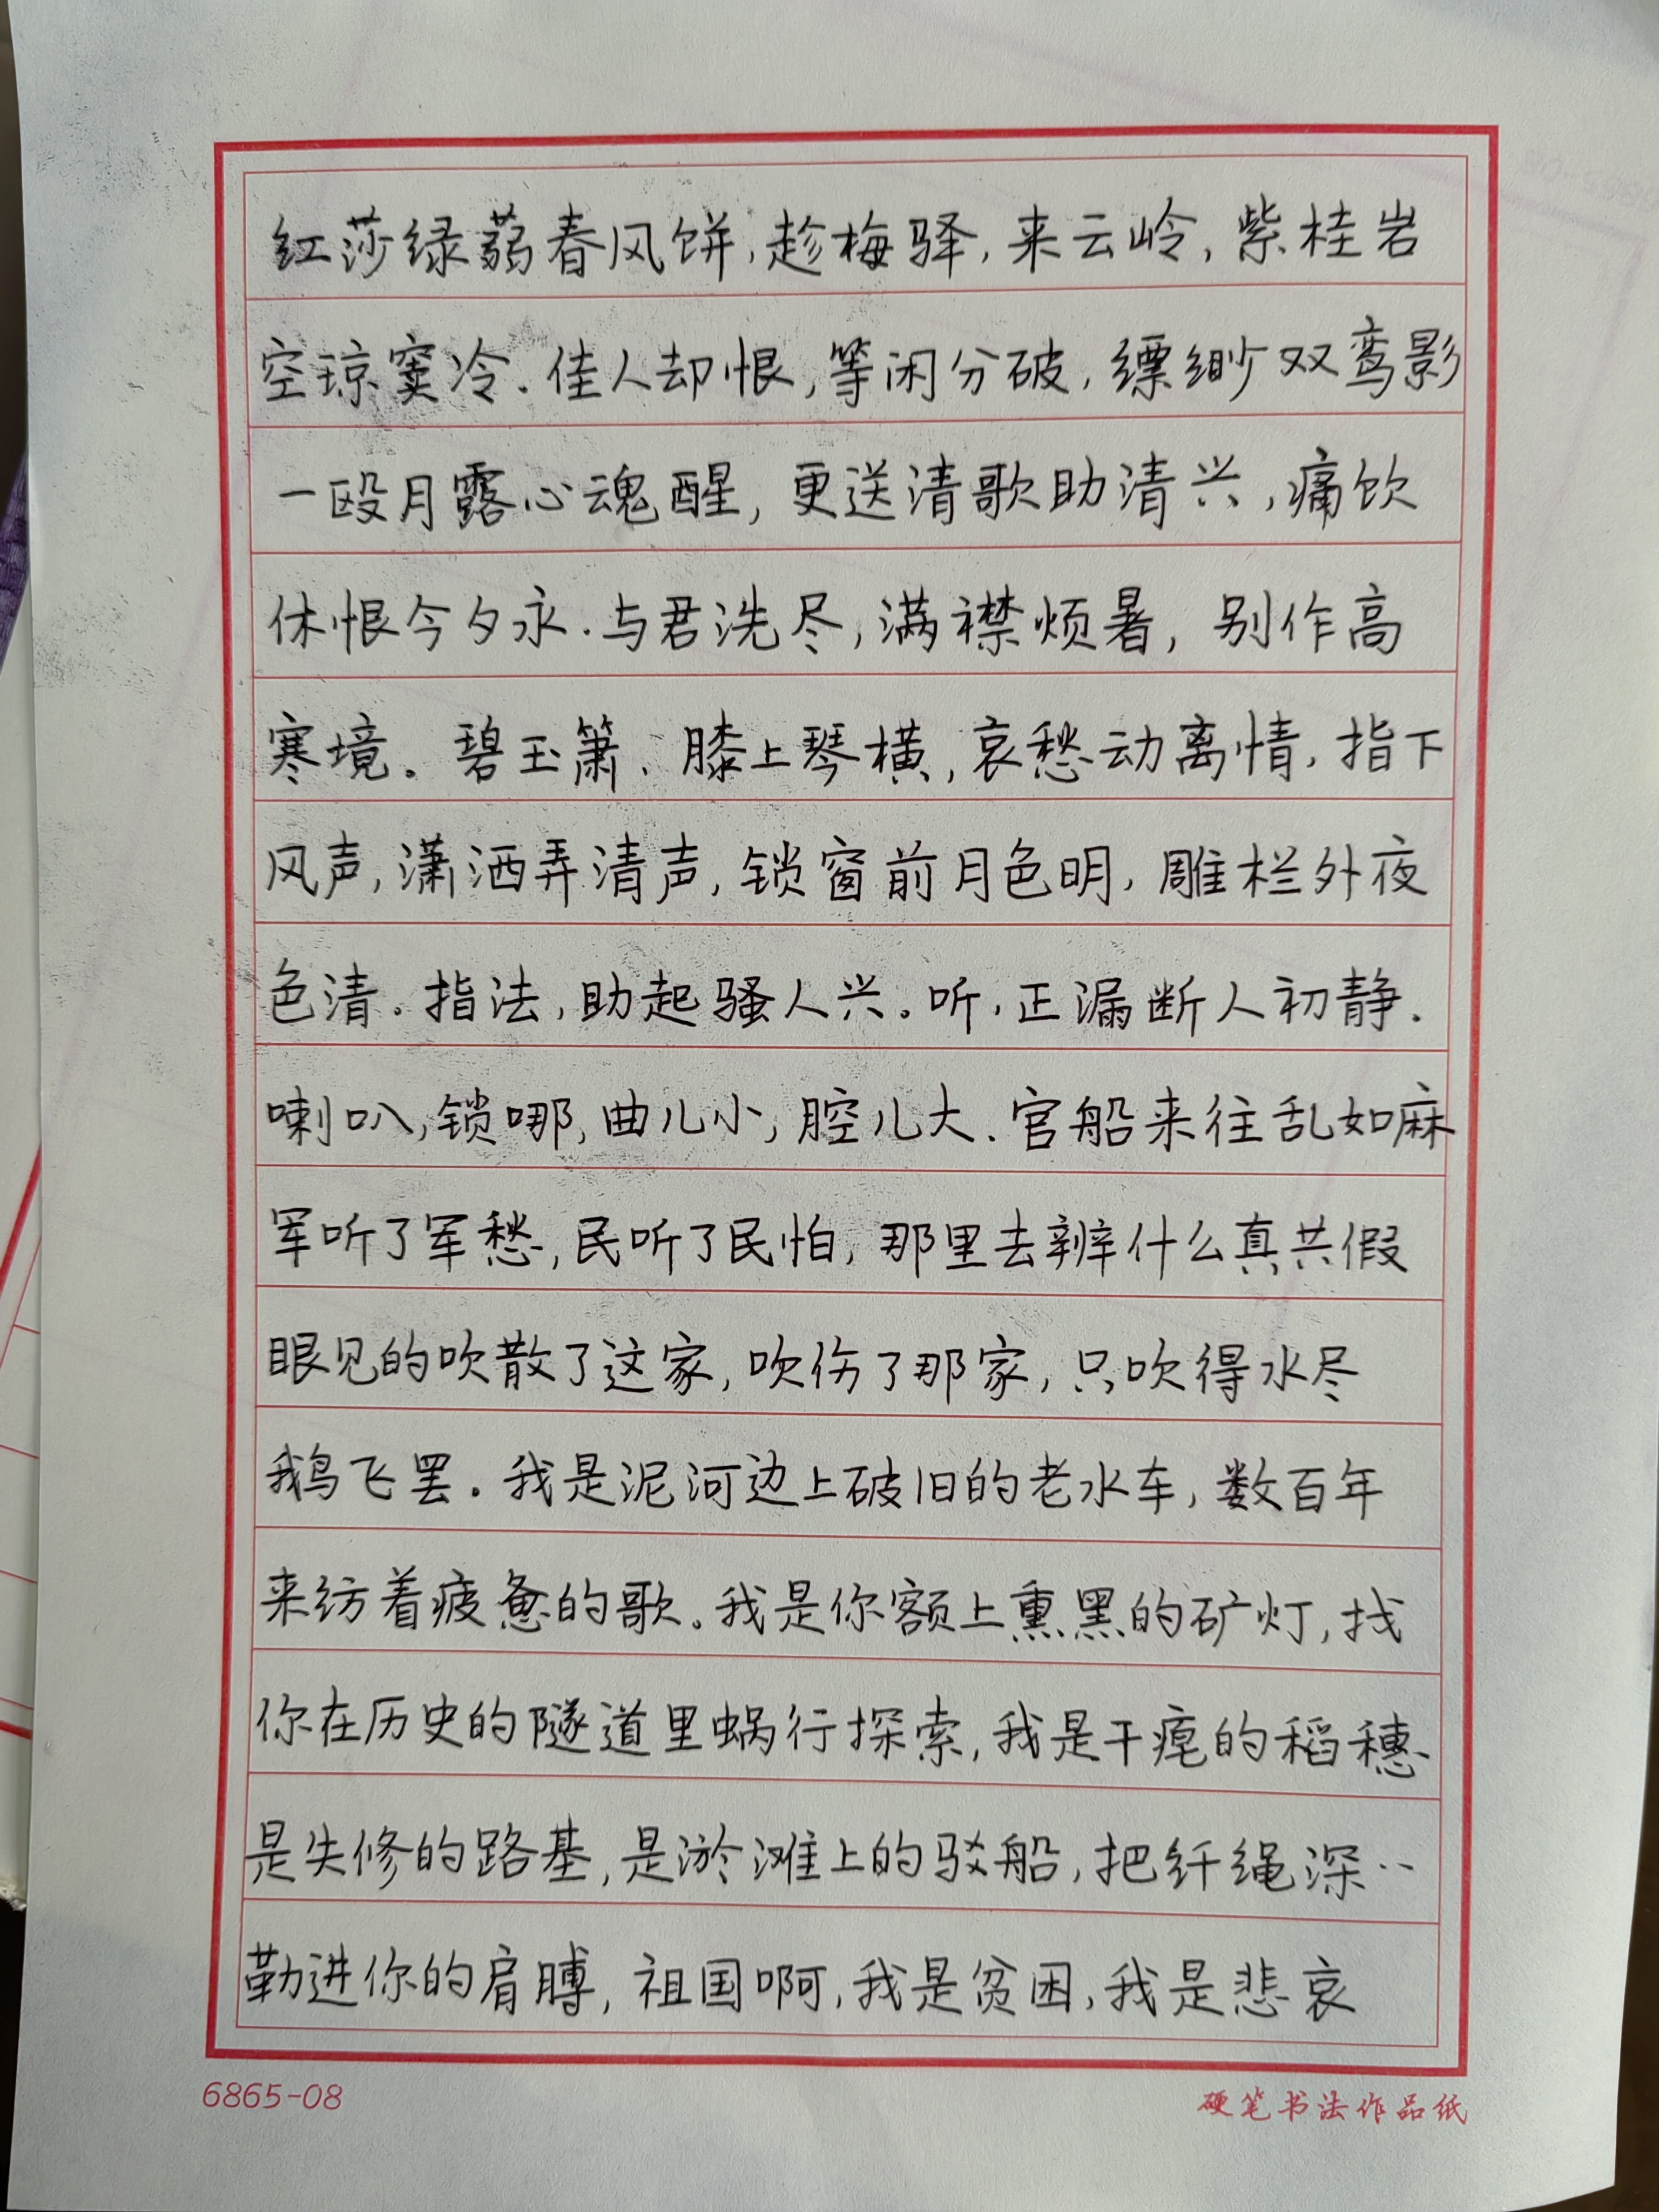 红莎绿蒻春风饼,趁梅驿,来云岭,紫桂岩
空琼窦冷.佳人却恨,等闲分破,缥缈双鸾影
一殴月露心魂醒,更送清歌助清兴,痛饮
休恨今夕永.与君洗尽,满襟烦暑,别作高
寒境。碧玉箫、膝上琴横,哀愁动离情,指下
风声,潇洒弄清声,锁窗前月色明,雕栏外夜
色清.指法,助起骚人兴。听,正漏断人初静.
喇叭,锁哪,曲儿小,腔儿大.官船来往乱如麻
军听了军愁,民听了民怕,那里去辨什么真共假
眼见的吹散了这家,吹伤了那家,只吹得水尽
鹅飞罢.我是泥河边上破旧的老水车,数百年
来纺着疲惫的歌.我是你额上熏黑的矿灯,找
你在历史的隧道里蜗行探索,我是干瘪的稻穗
是失修的路基,是淤滩上的驳船,把纤绳深..
勒进你的肩膊,祖国啊,我是贫困,我是悲哀
6865-08
硬笔书法作品纸